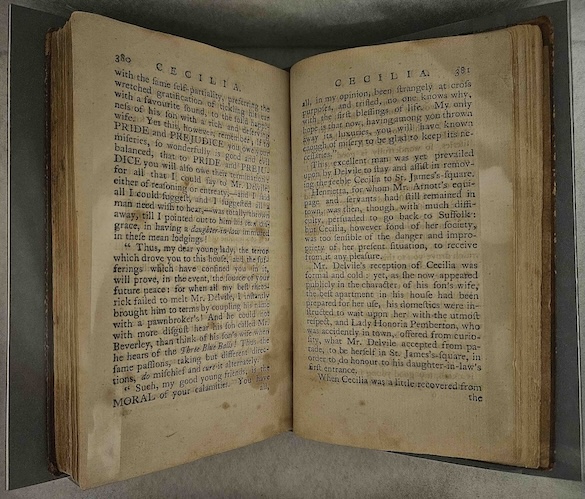 380
CECILIA.
with the same self-partiality, preferring the
wretched gratification of tickling his ear
with a favourite sound, to the solid happi-
ness of his son with a rich and deserving
wife. Yet this, however, remember; if to
PRIDE and PREJUDICE you owe your
miseries, so wonderfully is good and evil
balanced, that to PRIDE and PREJU-
DICE you will also owe their termination:
for all that I could say to Mr. Delvile,
either of reasoning or entreaty,—and I said
all I could suggest, and I suggested all a
man need wish to hear,—was totally thrown
away, till I pointed out to him his own dis-
grace, in having a daughter-in-law immured
in these mean lodgings!
“ Thus, my dear young lady, the terror
which drove you to this house, and the suf-
ferings which have confined you in it,
will prove, in the event, the source of your
future peace: for when all my best rheto-
rick failed to melt Mr. Delvile, I instantly
brought him to terms by coupling his name
with a pawnbroker's! And he could not
with more disgust hear his son called Mr.
Beverley, than think of his son's wife when
he hears of the Three Blue Balls! Thus the
same passions, taking but different direc-
tions, do mischief and cure it alternately.
“ Such, my good young friends, is the
MORAL of your calamities. You have
CECILIA.
381
all, in my opinion, been strangely at cross
purposes, and trifled, no one knows why,
with the first blessings of life. My only
hope is that now, having among you thrown
away its luxuries, you will have known
enough of misery to be glad to keep its ne-
cessaries.”
This excellent man was yet prevailed
upon by Delvile to stay and assist in remov-
ing the feeble Cecilia to St. James's-square.
Henrietta, for whom Mr. Arnott's equi-
page and servants had still remained in
town, was then, though with much diffi-
culty, persuaded to go back to Suffolk:
but Cecilia, however fond of her society,
was too sensible of the danger and impro-
priety of her present situation, to receive
from it any pleasure.
Mr. Delvile's reception of Cecilia was
formal and cold: yet, as she now appeared
publicly in the character of his son's wife,
the best apartment in his house had been
prepared for her use, his domestics were in-
structed to wait upon her with the utmost
respect, and Lady Honoria Pemberton, who
was accidently in town, offered from curio-
sity, what Mr. Delvile accepted from pa-
rade, to be herself in St. James's-square, in
order to do honour to his daughter-in-law's
first entrance.
When Cecilia was a little recovered from
the